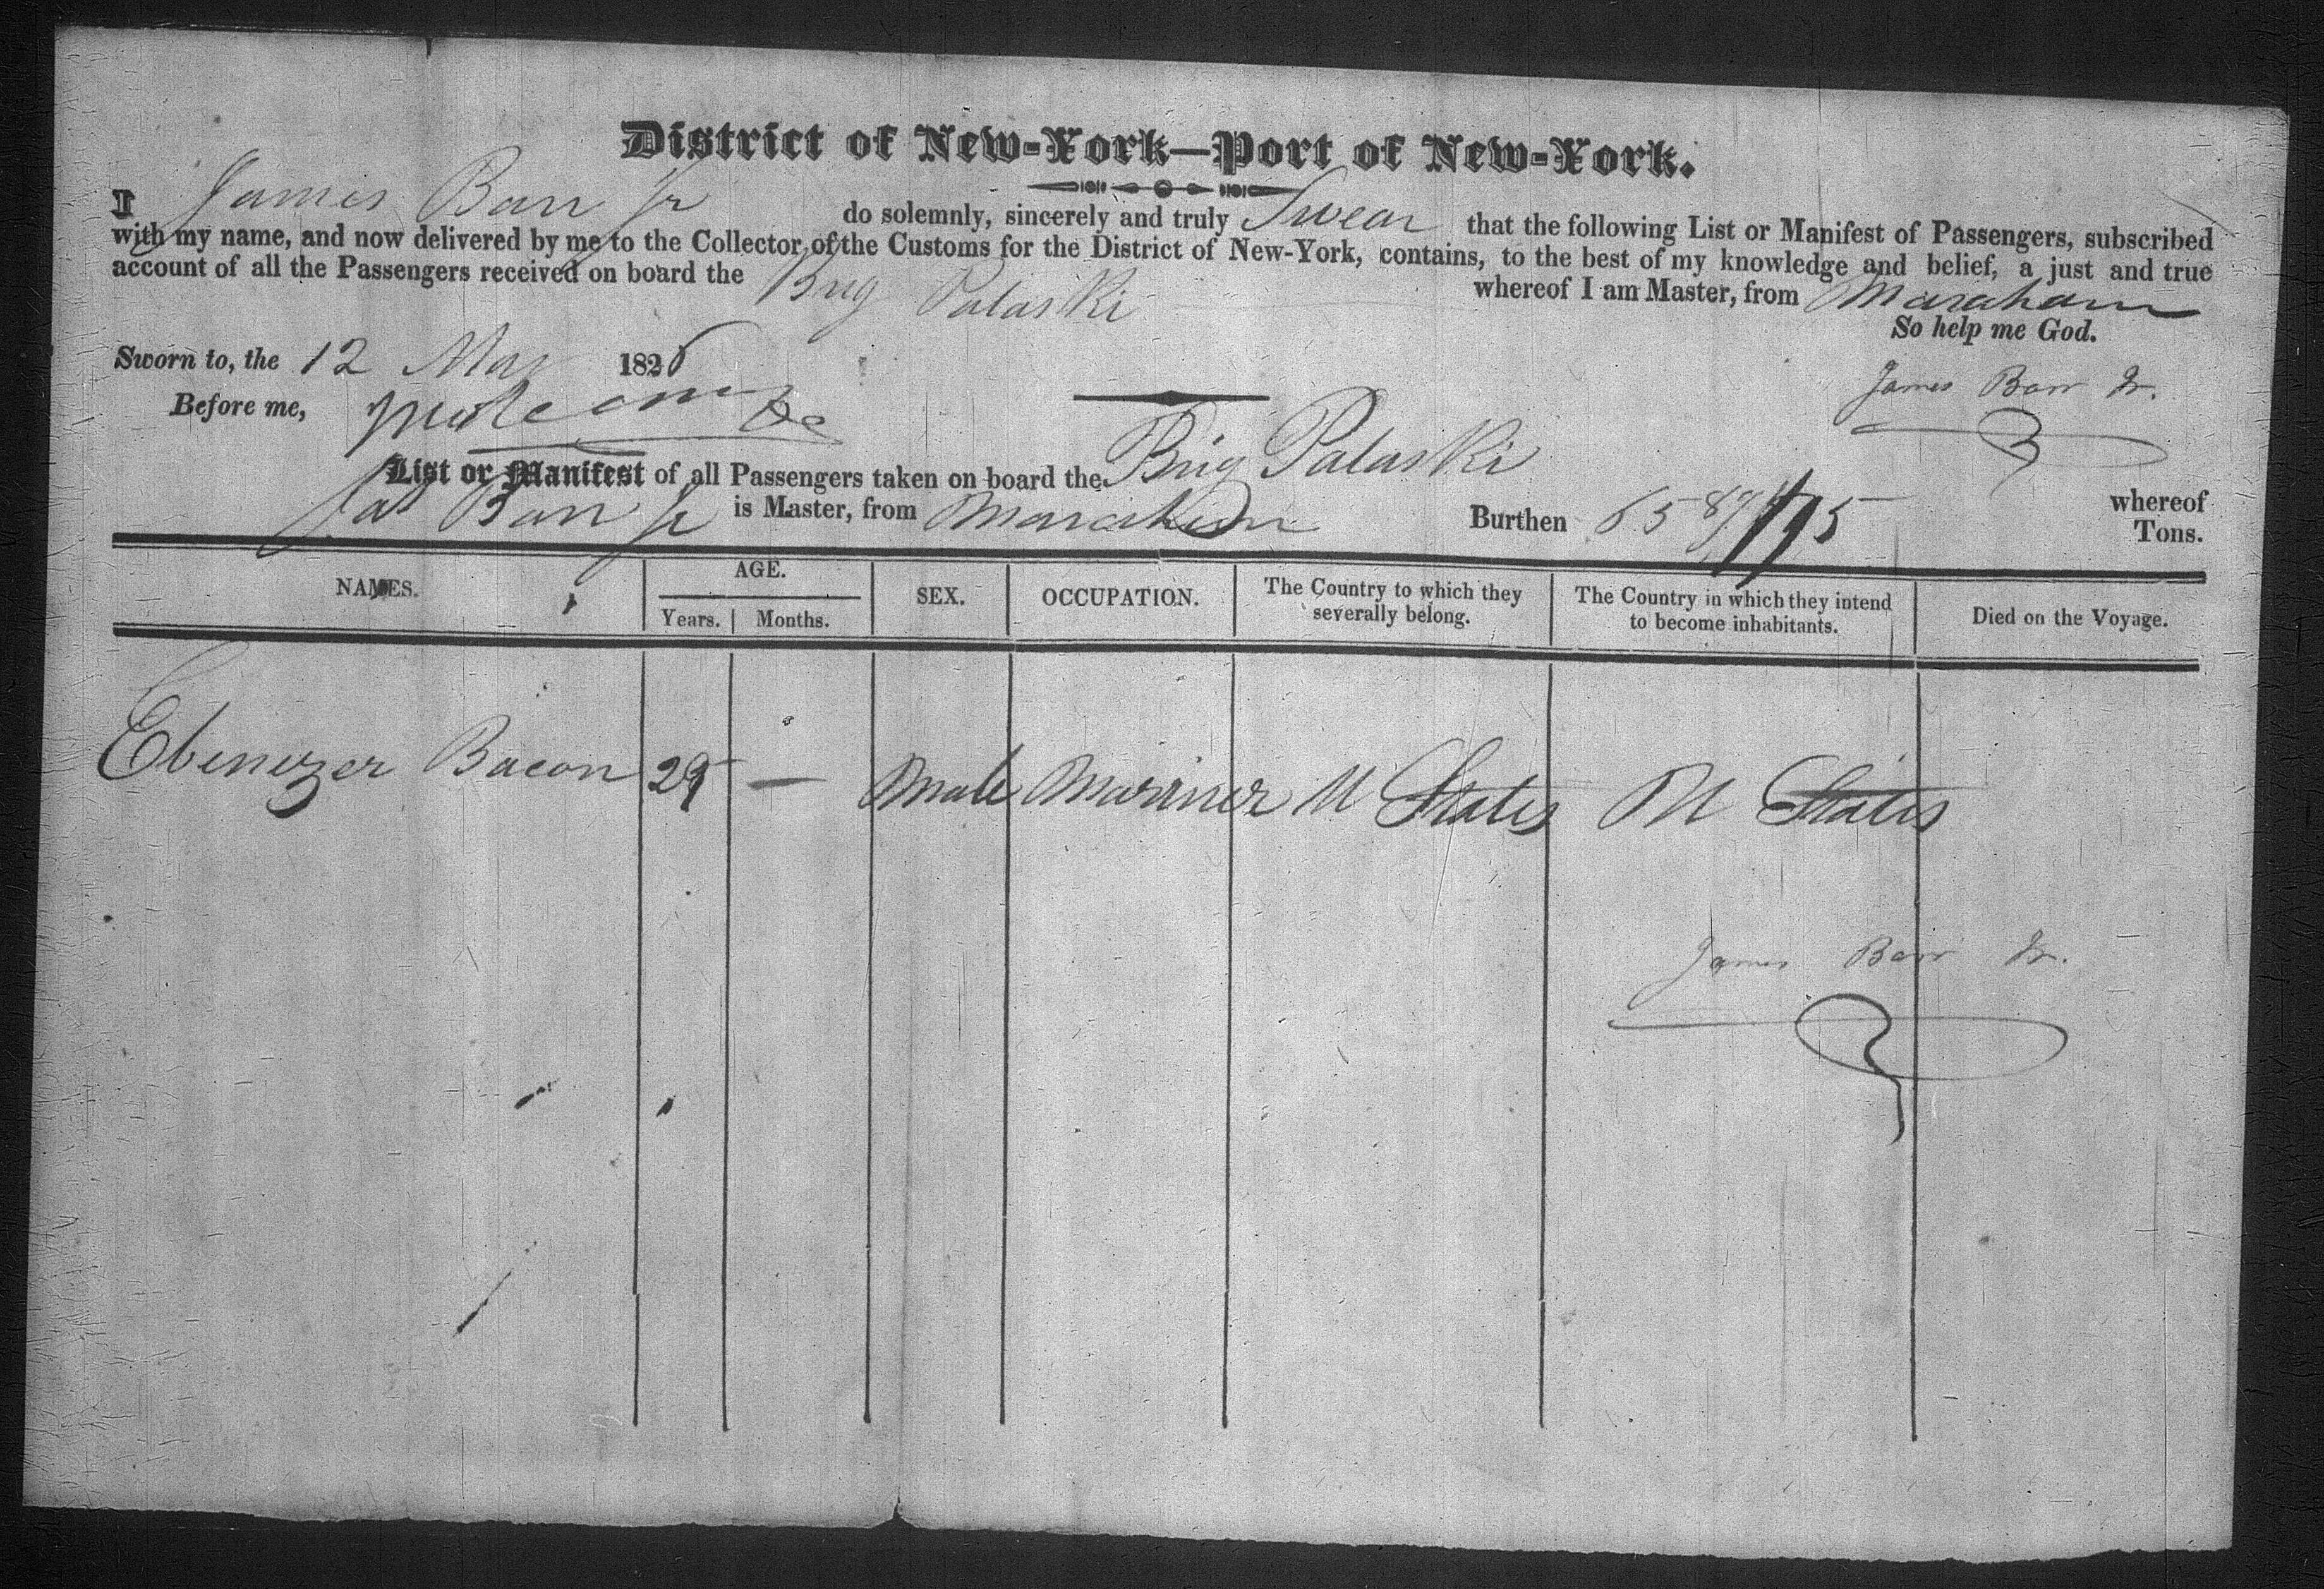 District of New-York—Port of New-York.
I James Barr Jr do solemnly, sincerely and truly Swear that the following List or Manifest of Passengers, subscribed
with my name, and now delivered by me to the Collector of the Customs for the District of New-York, contains, to the best of my knowledge and belief, a just and true
account of all the Passengers received on board the Brig Pulaski whereof I am Master, from Maraham
So help me God.
Sworn to, the 12 May 1828
James Barr Jr.
Before me,
List or Manifest of all Passengers taken on board the Brig Pulaski whereof
Jas Barr Jr is Master, from Maraham Burthen Tons.
NAMES. AGE. SEX. OCCUPATION. The Country to which they severally belong. The Country in which they intend to become inhabitants. Died on the Voyage.
Years. Months.
Ebenezer Bacon 29 — Male Mariner U States U States
James Barr Jr.